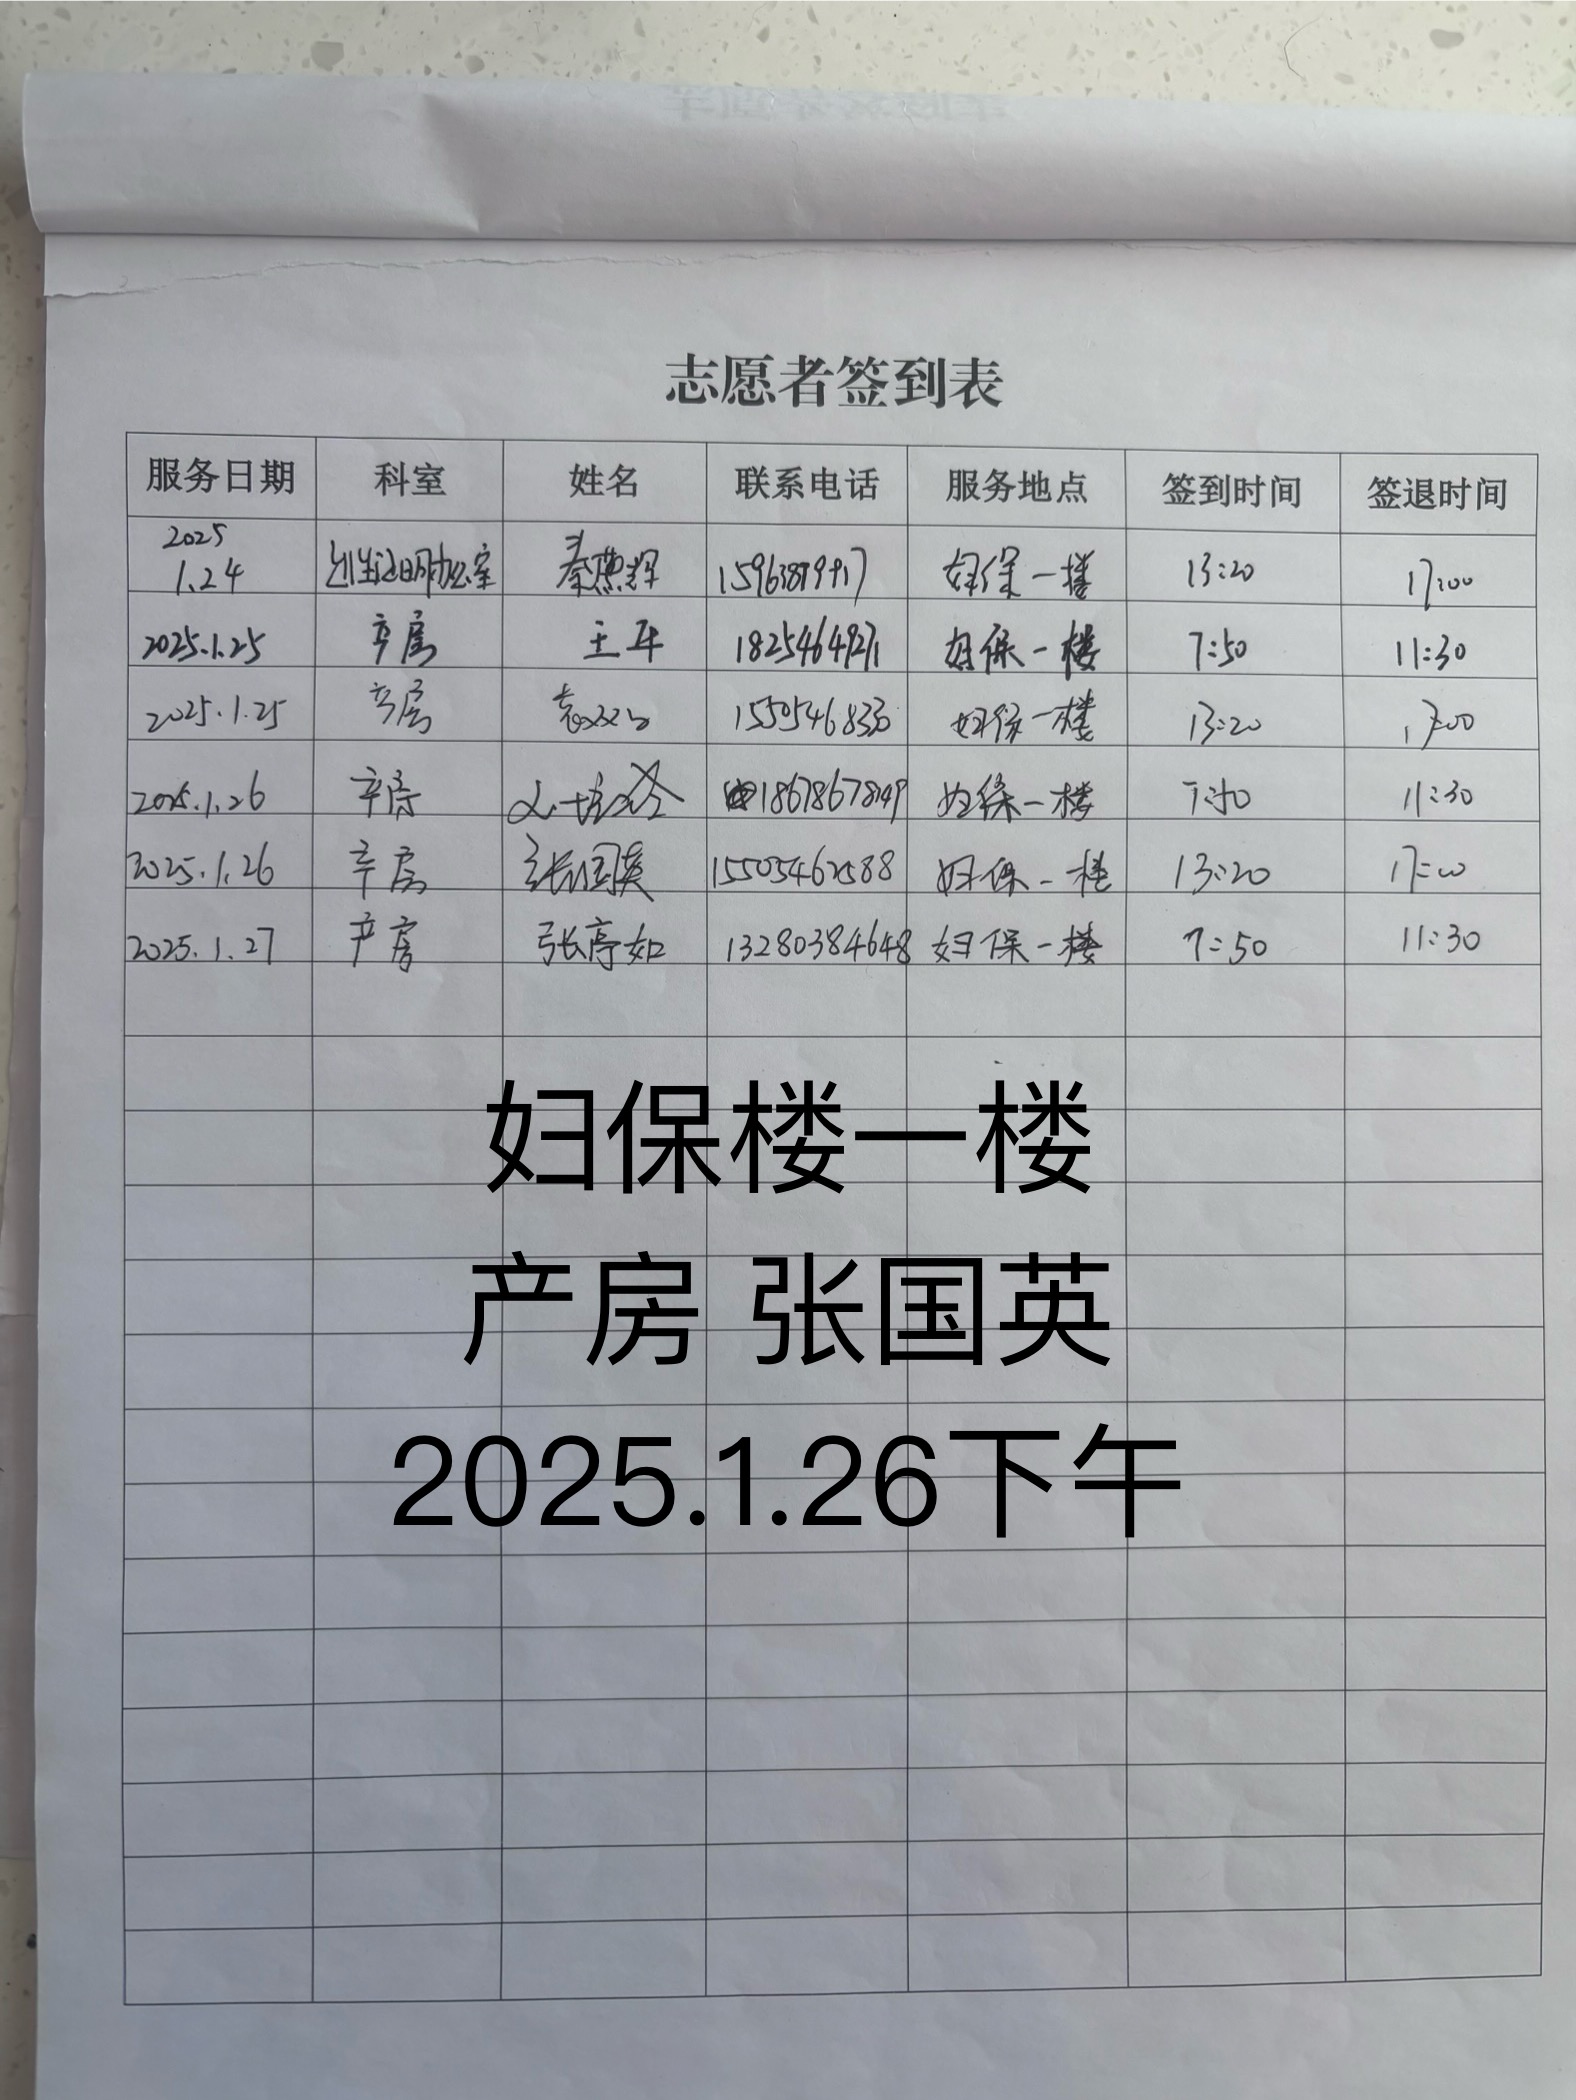 志愿者签到表
服务日期 科室 姓名 联系电话 服务地点 签到时间 签退时间
2025
1.24 妇保一楼 13:20 17:00
2025.1.25 产房 18254649271 妇保一楼 7:50 11:30
2025.1.25 产房 妇保一楼 13:20 17:00
2025.1.26 产房 18678678149 妇保一楼 7:50 11:30
2025.1.26 产房 张国英 15505462588 妇保一楼 13:20 17:00
2025.1.27 产房 张亭如 13280384648 妇保一楼 7:50 11:30
妇保楼一楼
产房 张国英
2025.1.26下午